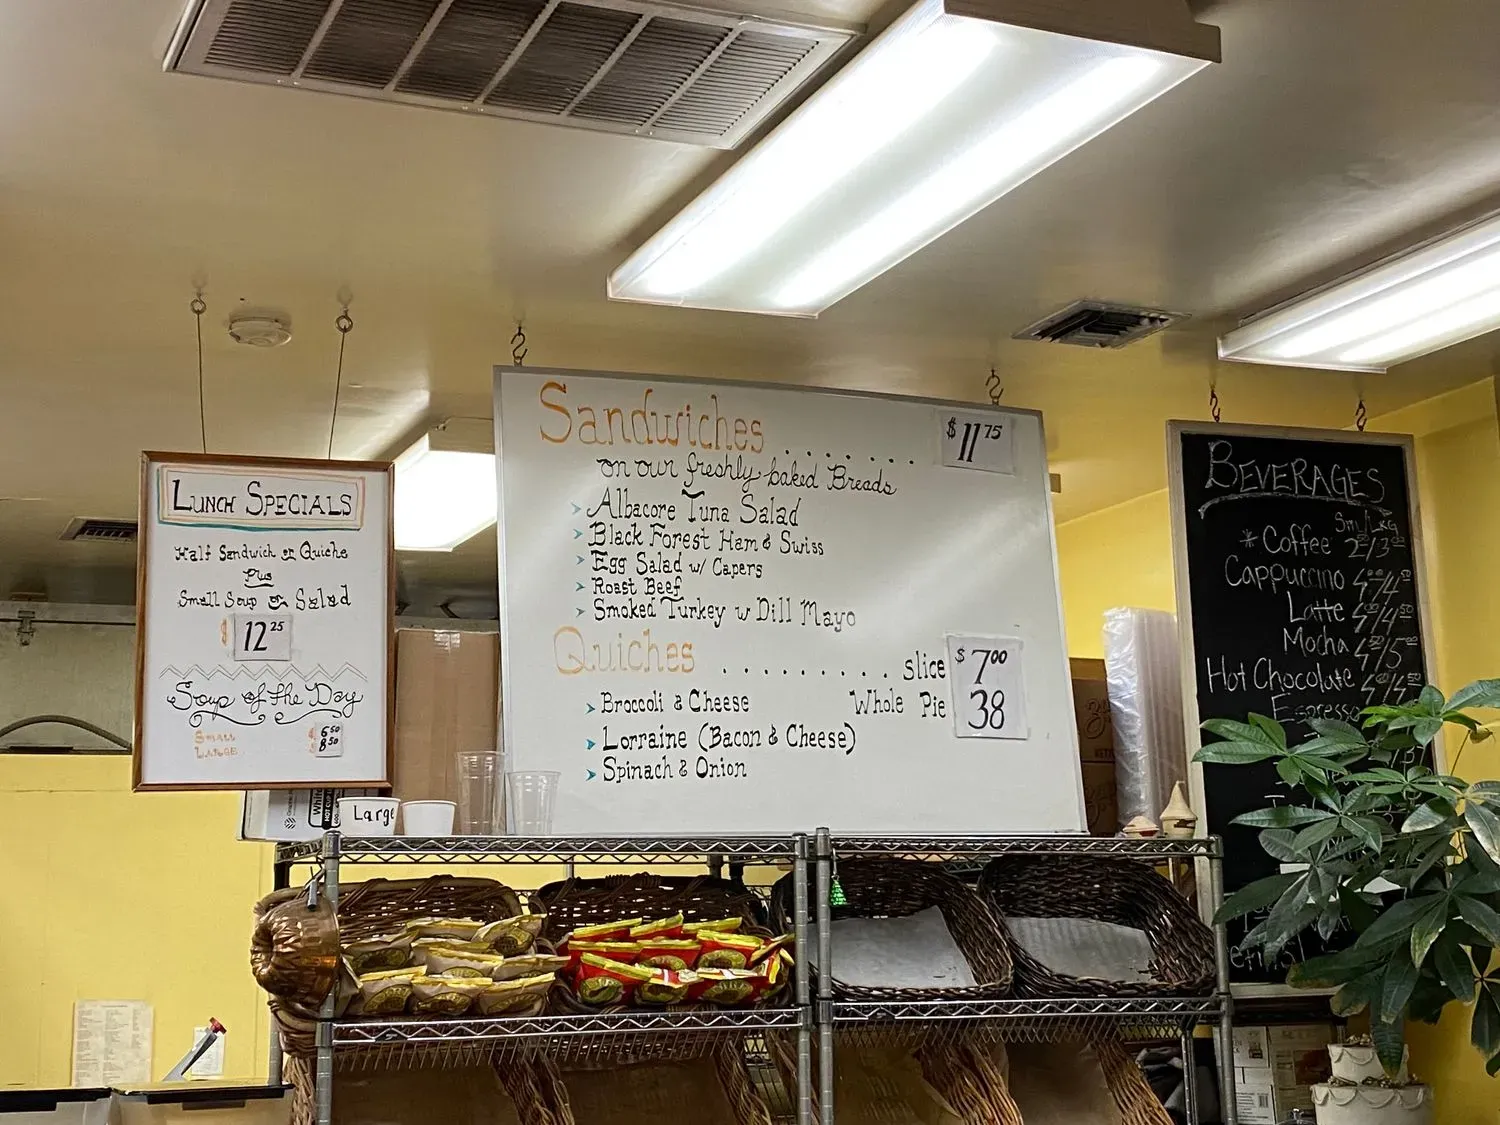 LUNCH SPECIALS
Half Sandwich or Quiche
Plus
Small Soup or Salad
$ 12 25
Soup of the Day
SMALL $ 6 50
LARGE $ 8 50
Sandwiches . . . . . . . $ 11 75
on our freshly baked Breads
➤ Albacore Tuna Salad
➤ Black Forest Ham & Swiss
➤ Egg Salad w/ Capers
➤ Roast Beef
➤ Smoked Turkey w Dill Mayo
Quiches . . . . . . . . . slice $ 7 00
➤ Broccoli & Cheese Whole Pie 38
➤ Lorraine (Bacon & Cheese)
➤ Spinach & Onion
BEVERAGES
Sm/Lrg
* Coffee
Cappuccino 4 00/4 50
Latte 4 00/4 50
Mocha 4 50/5 00
Hot Chocolate 4 00/4 50
Espresso
Large